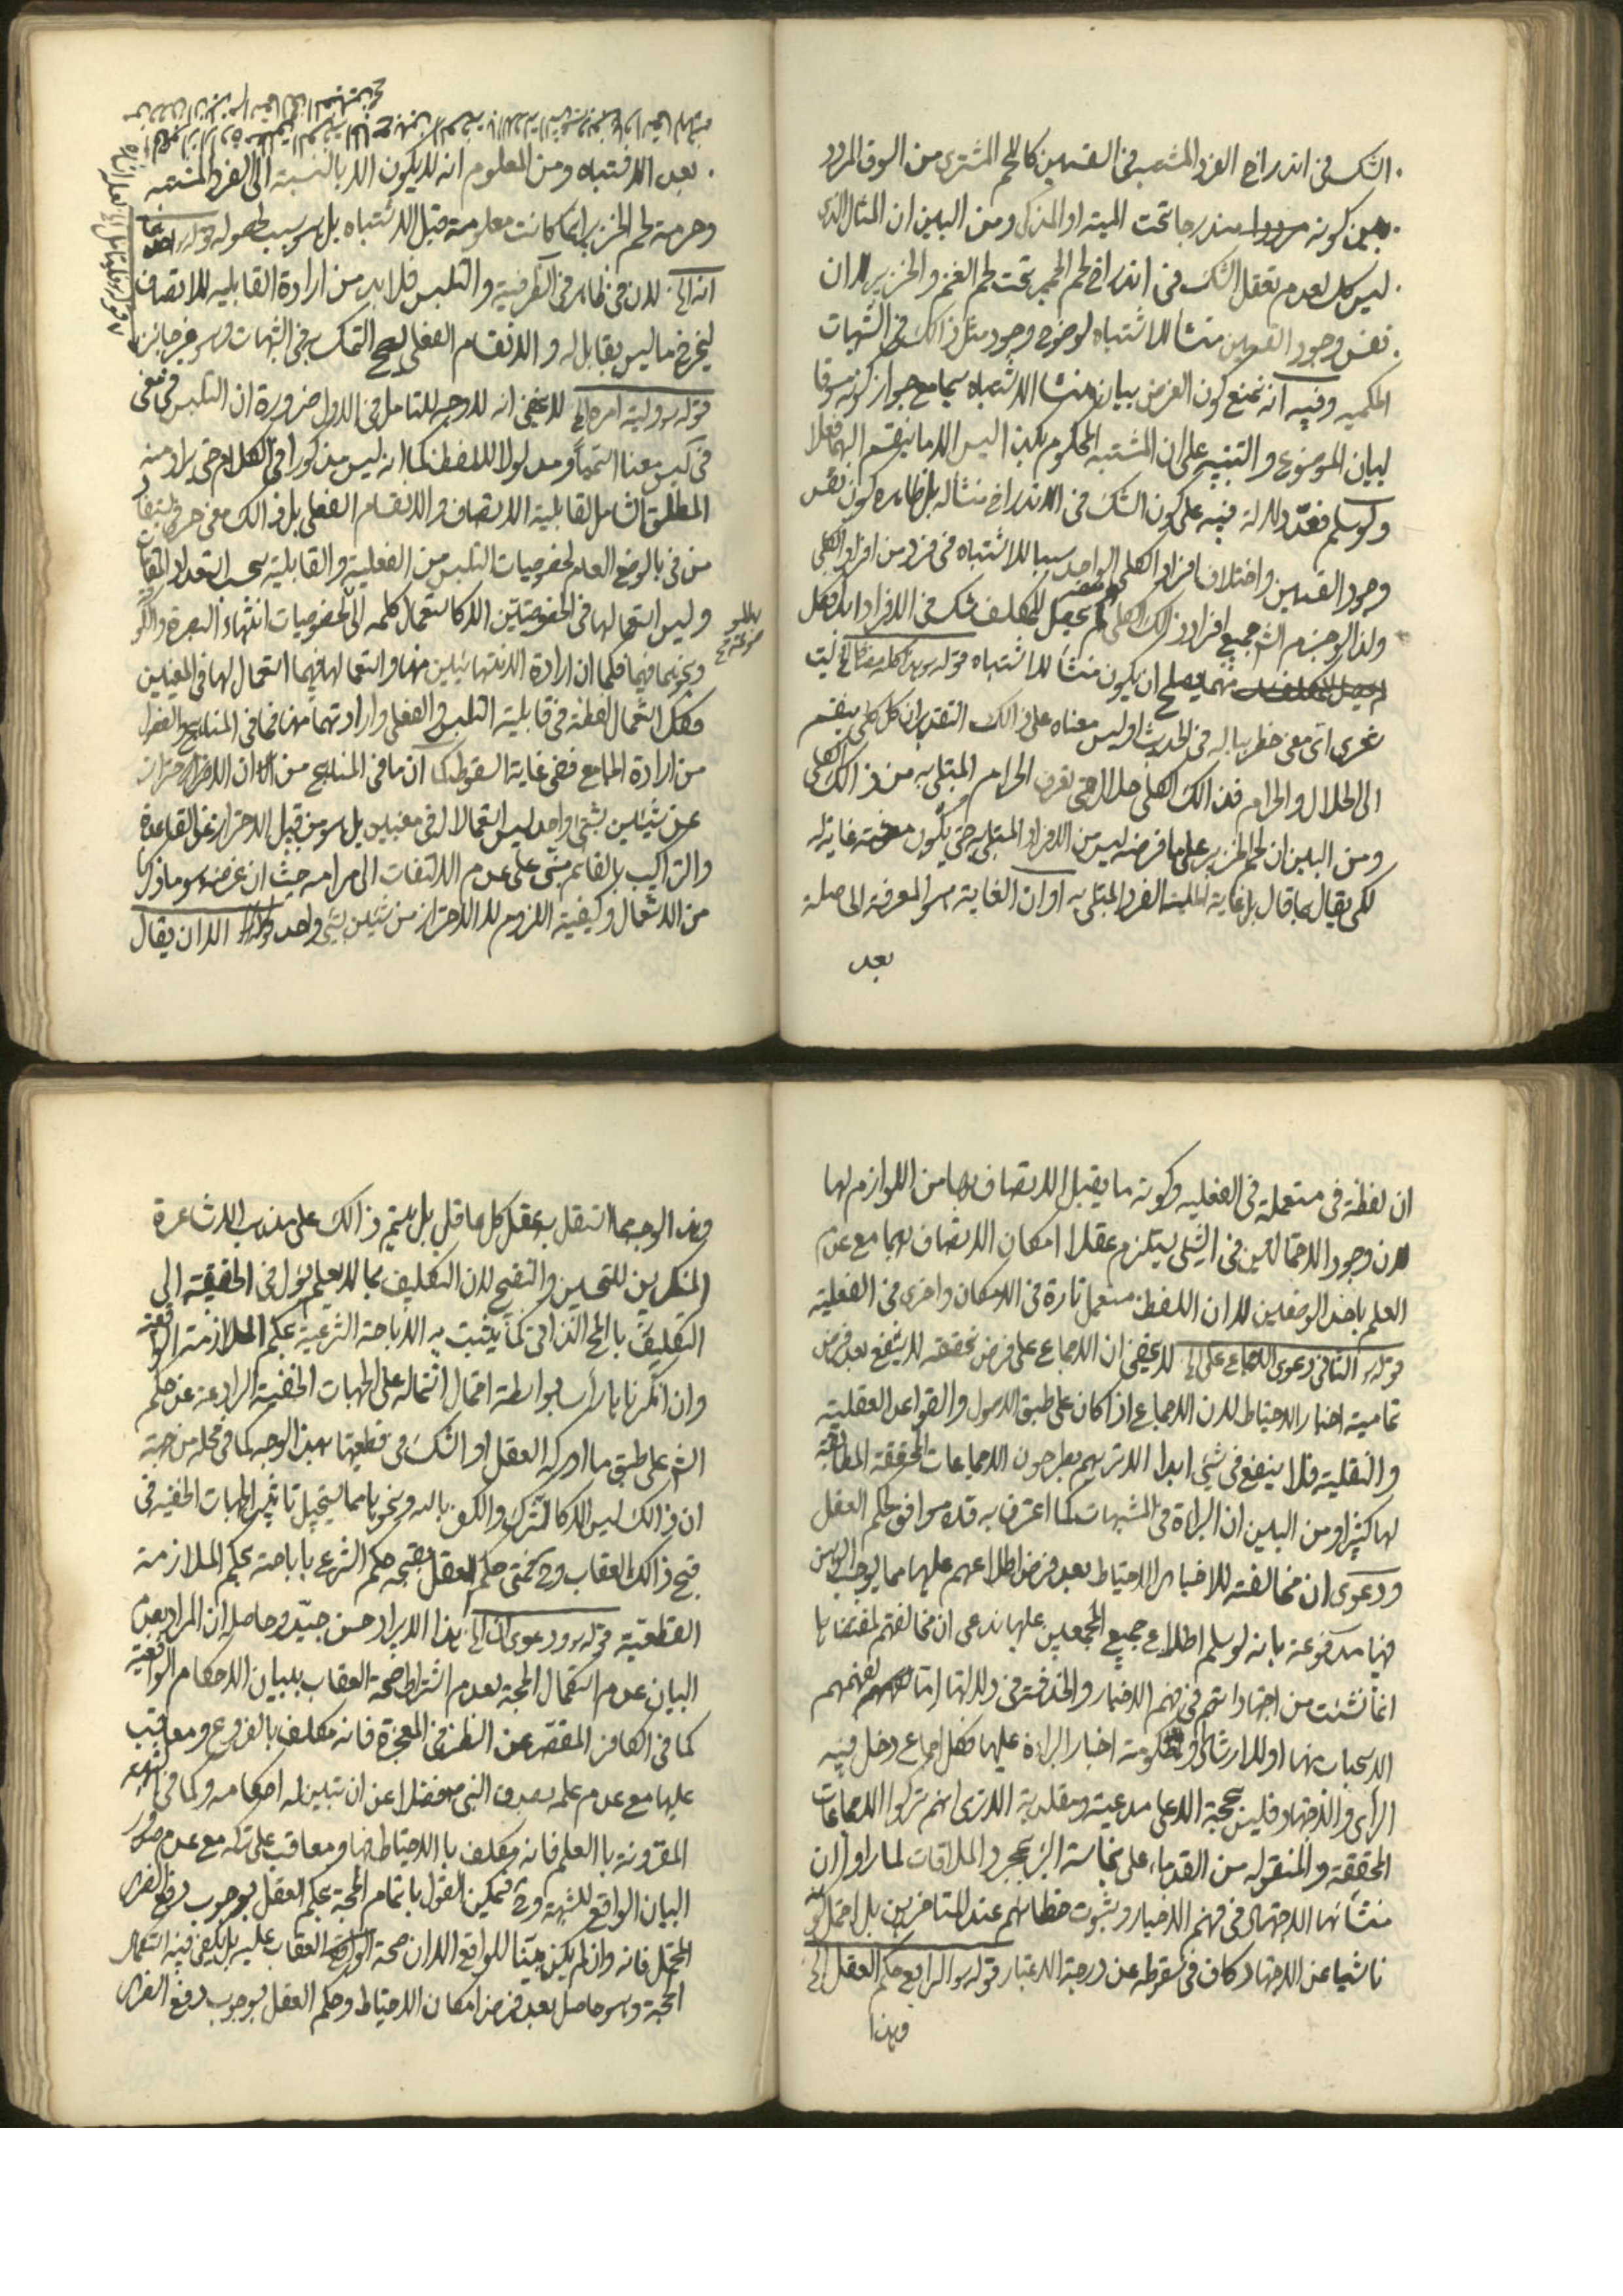 الشك فى اندراج الفرد المشتبه فى القسمين كاللحم المشترى من السوق المردد
بين كونه مندرجا تحت الميتة او المذكى ومن البين ان المثال الذى
ليس كل لعدم تعقل الشك فى اندراج لحم الحمير تحت لحم الغنم والخنزير الا ان
نفس وجود القسمين منشأ للاشتباه لوضوح وجود مثل ذالك فى الشبهات
الحكمية وفيه انه نمنع كون الغرض بيان منشا الاشتباه سيما مع جواز كونه مسوقا
لبيان الموضوع والتنبيه على ان المشتبه المحكوم بكذا ليس الا ما ينقسم اليهما فعلا
ولو سلم فغير دلالة فيه على كون الشك فى الاندراج منشأ له بل ظاهره كون نفس
وجود القسمين واختلاف افراد الكلى الواحد سببا للاشتباه فى فرد من افراد الكلى
ولذا لو جزم الشارع جميع افراد ذلك الكلى لم يحصل للمكلف شك فى الافراد ابدا فكل
منهما يصلح ان يكون منشأ للاشتباه قوله
شعرى اى معنى خطر بباله فى الحديث او ليس معناه على ذالك التقدير ان كل كلى ينقسم
الى الحلال والحرام فذالك الكلى حلال حتى تعرف الحرام المبتلى به من ذالك الكلى
ومن البين ان لحم الخنزير على ما فرضه ليس من الافراد المبتلى به حتى يكون معرفته غاية له
لكى يقال ما قال بل غاية الحلية الفرد المبتلى به او ان الغاية هو المعرفة الحاصلة
بعد
بعد الاشتباه ومن المعلوم انه لا يكون الا بالنسبة الى الفرد المشتبه
وحرمة لحم الخنزير انما كانت معلومة قبل الاشتباه بل هو سبب لحصوله قوله
انه الخ لان فى ظاهر فى الظرفية والتلبس فلا بد من ارادة القابلية للاتصاف
ليخرج ما ليس بقابل له والانقسام الفعلى ليصح التمسك به فى الشبهات وهو غير جائز
قوله الخ لا يخفى انه لا وجه للتامل فى الاول ضرورة ان التلبس فى معنى
فى ليس معنا اسميا ومدلولا للفظ كما انه ليس مذكورا فى الكلام حتى يراد منه
المطلق الشامل لقابلية الاتصاف والانقسام الفعلى بل ذالك معنى حرفى
من فى بالوضع العام لخصوصيات التلبس من الفعلية والقابلية بحسب تعدد المقامات
وليس استعمالها فى الخصوصيتين الا كاستعمال كلمه الى لخصوصيات انتهاء البصرة والكوفة
ونحوهما فيهما فكما ان ارادة الانتهائيين منها واستعمالها فيهما استعمال لها فى المعنيين
فكك استعمال لفظة فى قابلية التلبس والفعلى وارادتهما منها فما فى المناهج والفصول
من ارادة الجامع ففى غاية السقوط كما ان ما فى المناهج من ان الاحتراز
عن شيئين بشئ واحد ليس استعمالا له فى معنيين بل هو من قبيل الاحتراز عن القاعدة
والتراكيب بالقائم مبنى على عدم الالتفات الى مرامه حيث ان غرضه هو ما ذكرنا
من الاستعمال وكيفية اللزوم لا الاحتراز من شيئين بشئ واحد قوله الا ان يقال
ان لفظة فى مستعملة فى الفعلية وكونه ما يقبل الاتصاف بهما من اللوازم لها
لان وجود الاحتمالين فى الشئ يستلزم عقلا امكان الاتصاف بهما مع عدم
العلم باحد الوصفين لا ان اللفظ مستعمل تارة فى الامكان واخرى فى الفعلية
قوله الثانى دعوى الاجماع على الخ لا يخفى ان الاجماع على فرض تحققه لا ينفع بعد فرض
تمامية اخبار الاحتياط لان الاجماع اذا كان على طبق الاصول والقواعد العقلية
والنقلية فلا ينفع فى شئ ابدا الا تريهم يطرحون الاجماعات المحققة المطابقة
لها كثيرا ومن البين ان البرائة فى المشبهات كما اعترف به قده موافق لحكم العقل
ودعوى ان مخالفته للاخبار الاحتياط بعد فرض اطلاعهم عليها مما يوجب الوهن
فيها مدفوعة بانه لو سلم اطلاع جميع المجمعين عليها ندعى ان مخالفتهم لمقتضاها
انما نشئت من اجتهاداتهم فى فهم الاخبار والخدشة فى دلالتها اما لفهمهم
الاستحباب منها او للارشاد او لحكومة اخبار البرائة عليها فكل اجماع دخل فيه
الراى والاجتهاد فليس بحجة الا على مدعيه ومقلديه الا ترى انهم تركوا الاجماعات
المحققة والمنقوله من القدماء على نجاسة البئر بمجرد الملاقات لما راوا ان
منشائها الاجتهاد فى فهم الاخبار وثبوت خطائهم عند المتاخرين بل احتمل كونه
ناشيا عن الاجتهاد كاف فى سقوطه عن درجة الاعتبار قوله الرابع حكم العقل الخ
وهذا
وهذا الوجه مما استقل به عقل كل عاقل بل يتم ذالك على مذهب الاشاعرة
المنكرين للتحسين والتقبيح لان التكليف بما لا يعلم يؤل فى الحقيقة الى
التكليف بالمحال الذاتى كما يثبت به الاباحة الشرعية بحكم الملازمة الواقعية
وان انكرناها راسا بواسطة احتمال اشتماله على الجهات الخفية الرادعة عن حكم
الشرع على طبق ما ادركه العقل او الشك فى قطعيتها بهذا الوجه كما فى محله من جهة
ان ذالك ليس الا كالشرك والكفر بالله ونحوها مما يستحيل تاثير الجهات الخفية فى
قبح ذالك العقاب وح يحكم العقل بقبحه حكم الشرع باباحته بحكم الملازمة
القطعية قوله ودعوى ان الخ هذا الايراد حسن جيد وحاصله ان المراد بعدم
البيان عدم استكمال الحجة لعدم اشتراط صحة العقاب ببيان الاحكام الواقعية
كما فى الكافر المقصر عن النظر فى المعجزة فانه مكلف بالفروع ومعاقب
عليها مع عدم علمه بصدق النبى ص فضلا عن ان تبين له احكامه وكما فى الشبهة
المقرونة بالعلم فانه مكلف بالاحتياط فيها ومعاقب على تركه مع عدم صدور
البيان الواقع للشبهة وح فيمكن القول باتمام الحجة بحكم العقل بوجوب دفع الضرر
المحتمل فانه وان لم يكن مبينا للواقع الا ان صحة العقاب عليه بل يكفى فيه استكمال
الحجة وهو حاصل بعد فرض امكان الاحتياط وحكم العقل بوجوب دفع الضرر